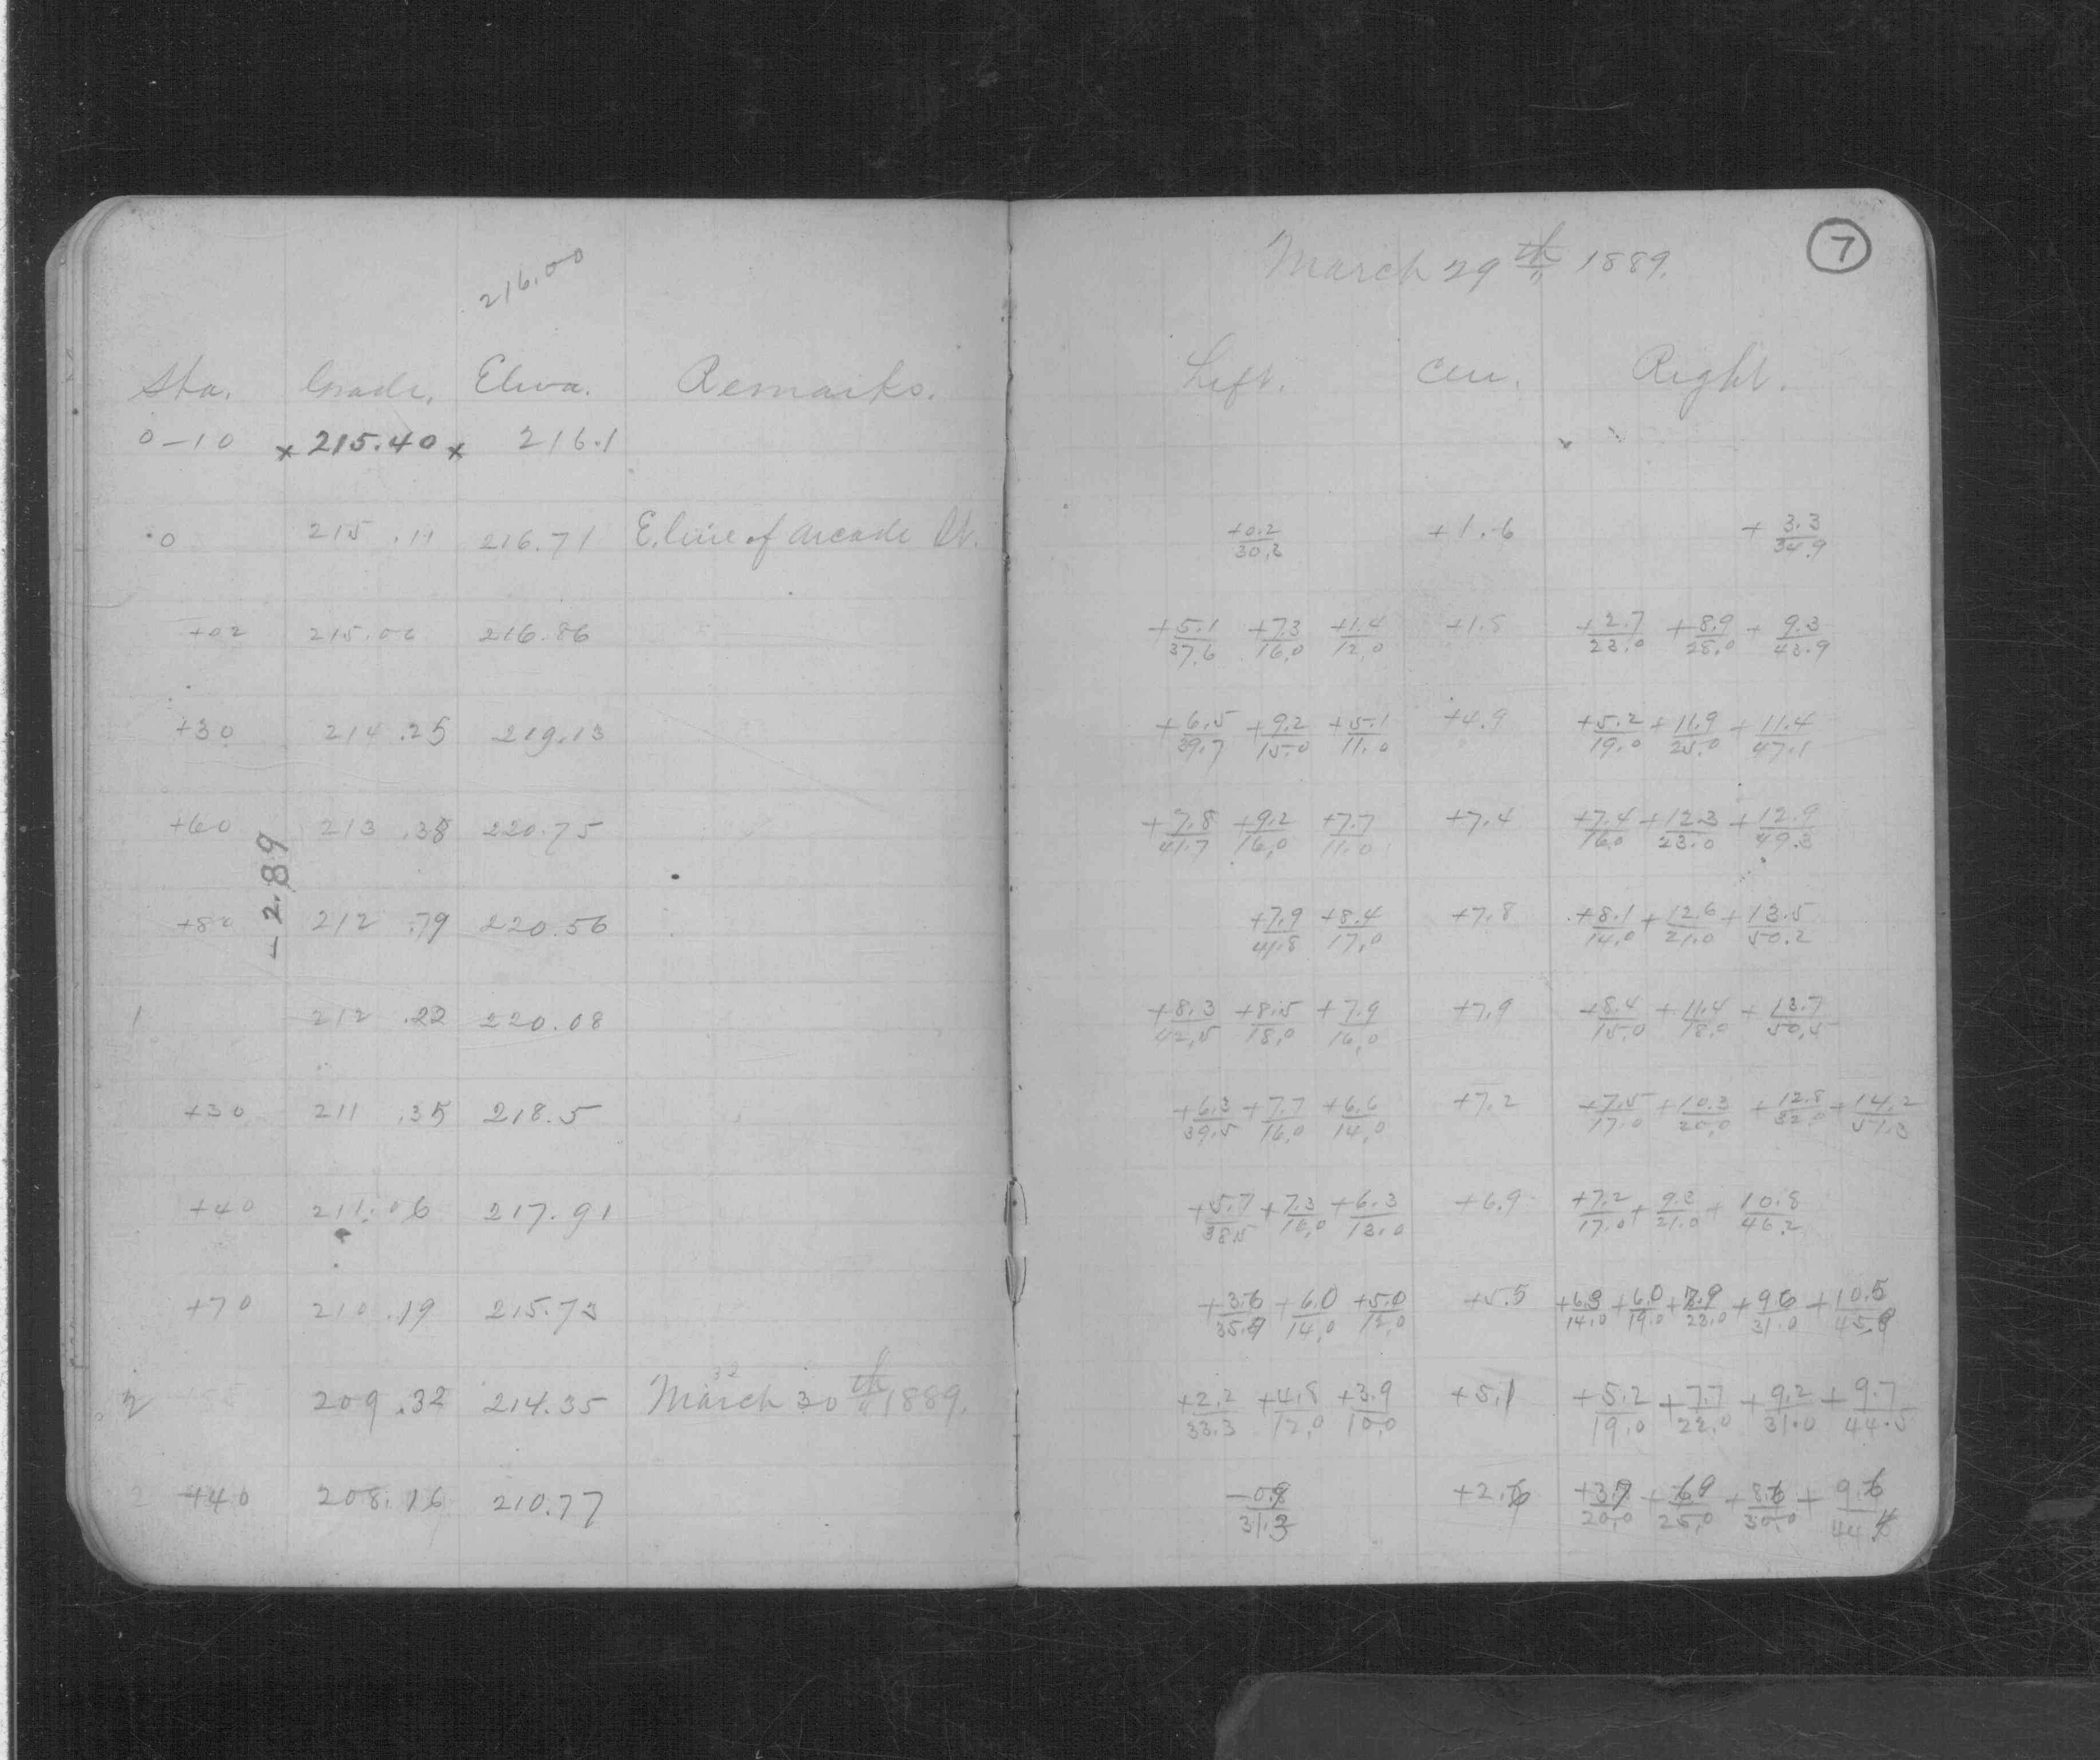 216.00
Sta. Grade. Eleva. Remarks.
0-10 x 215.40 x 216.1
0 215.11 216.71 E. line of Arcade St.
+02 215.06 216.86
+30 214.25 219.13
+60 213.38 220.75
-2.89
+80 212.79 220.56
1 212.22 220.08
+30 211.35 218.5
+40 211.06 217.91
+70 210.19 215.73
2 209.32 214.35 March 30th 1889.
2 +40 208.16 210.77
7
March 29th 1889.
Left. Cen. Right.
+0.2/30.2 +1.6 +3.3/34.9
+5.1/37.6 +7.3/16.0 +1.4/12.0 +1.8 +2.7/23.0 +8.9/28.0 +9.3/43.9
+6.5/39.7 +9.2/15.0 +5.1/11.0 +4.9 +5.2/19.0 +11.9/25.0 +11.4/47.1
+7.8/41.7 +9.2/16.0 +7.7/11.0 +7.4 +7.4/16.0 +12.3/23.0 +12.9/49.3
+7.9/41.8 +8.4/17.0 +7.8 +8.1/14.0 +12.6/21.0 +13.5/50.2
+8.3/42.5 +8.5/18.0 +7.9/16.0 +7.9 +8.4/15.0 +11.4/18.0 +13.7/50.5
+6.3/39.5 +7.7/16.0 +6.6/14.0 +7.2 +7.5/17.0 +10.3/20.0 +12.8/32.0 +14.2/51.3
+5.7/38.5 +7.3/16.0 +6.3/13.0 +6.9 +7.2/17.0 +9.3/21.0 +10.8/46.2
+3.6/35.9 +6.0/14.0 +5.0/12.0 +5.5 +6.3/14.0 +6.0/19.0 +7.9/23.0 +9.6/31.0 +10.5/45.8
+2.2/33.3 +4.8/12.0 +3.9/10.0 +5.1 +5.2/19.0 +7.7/22.0 +9.2/31.0 +9.7/44.5
+2.6 +3.7/20.0 +6.9/25.0 +8.6/30.0 +9.6